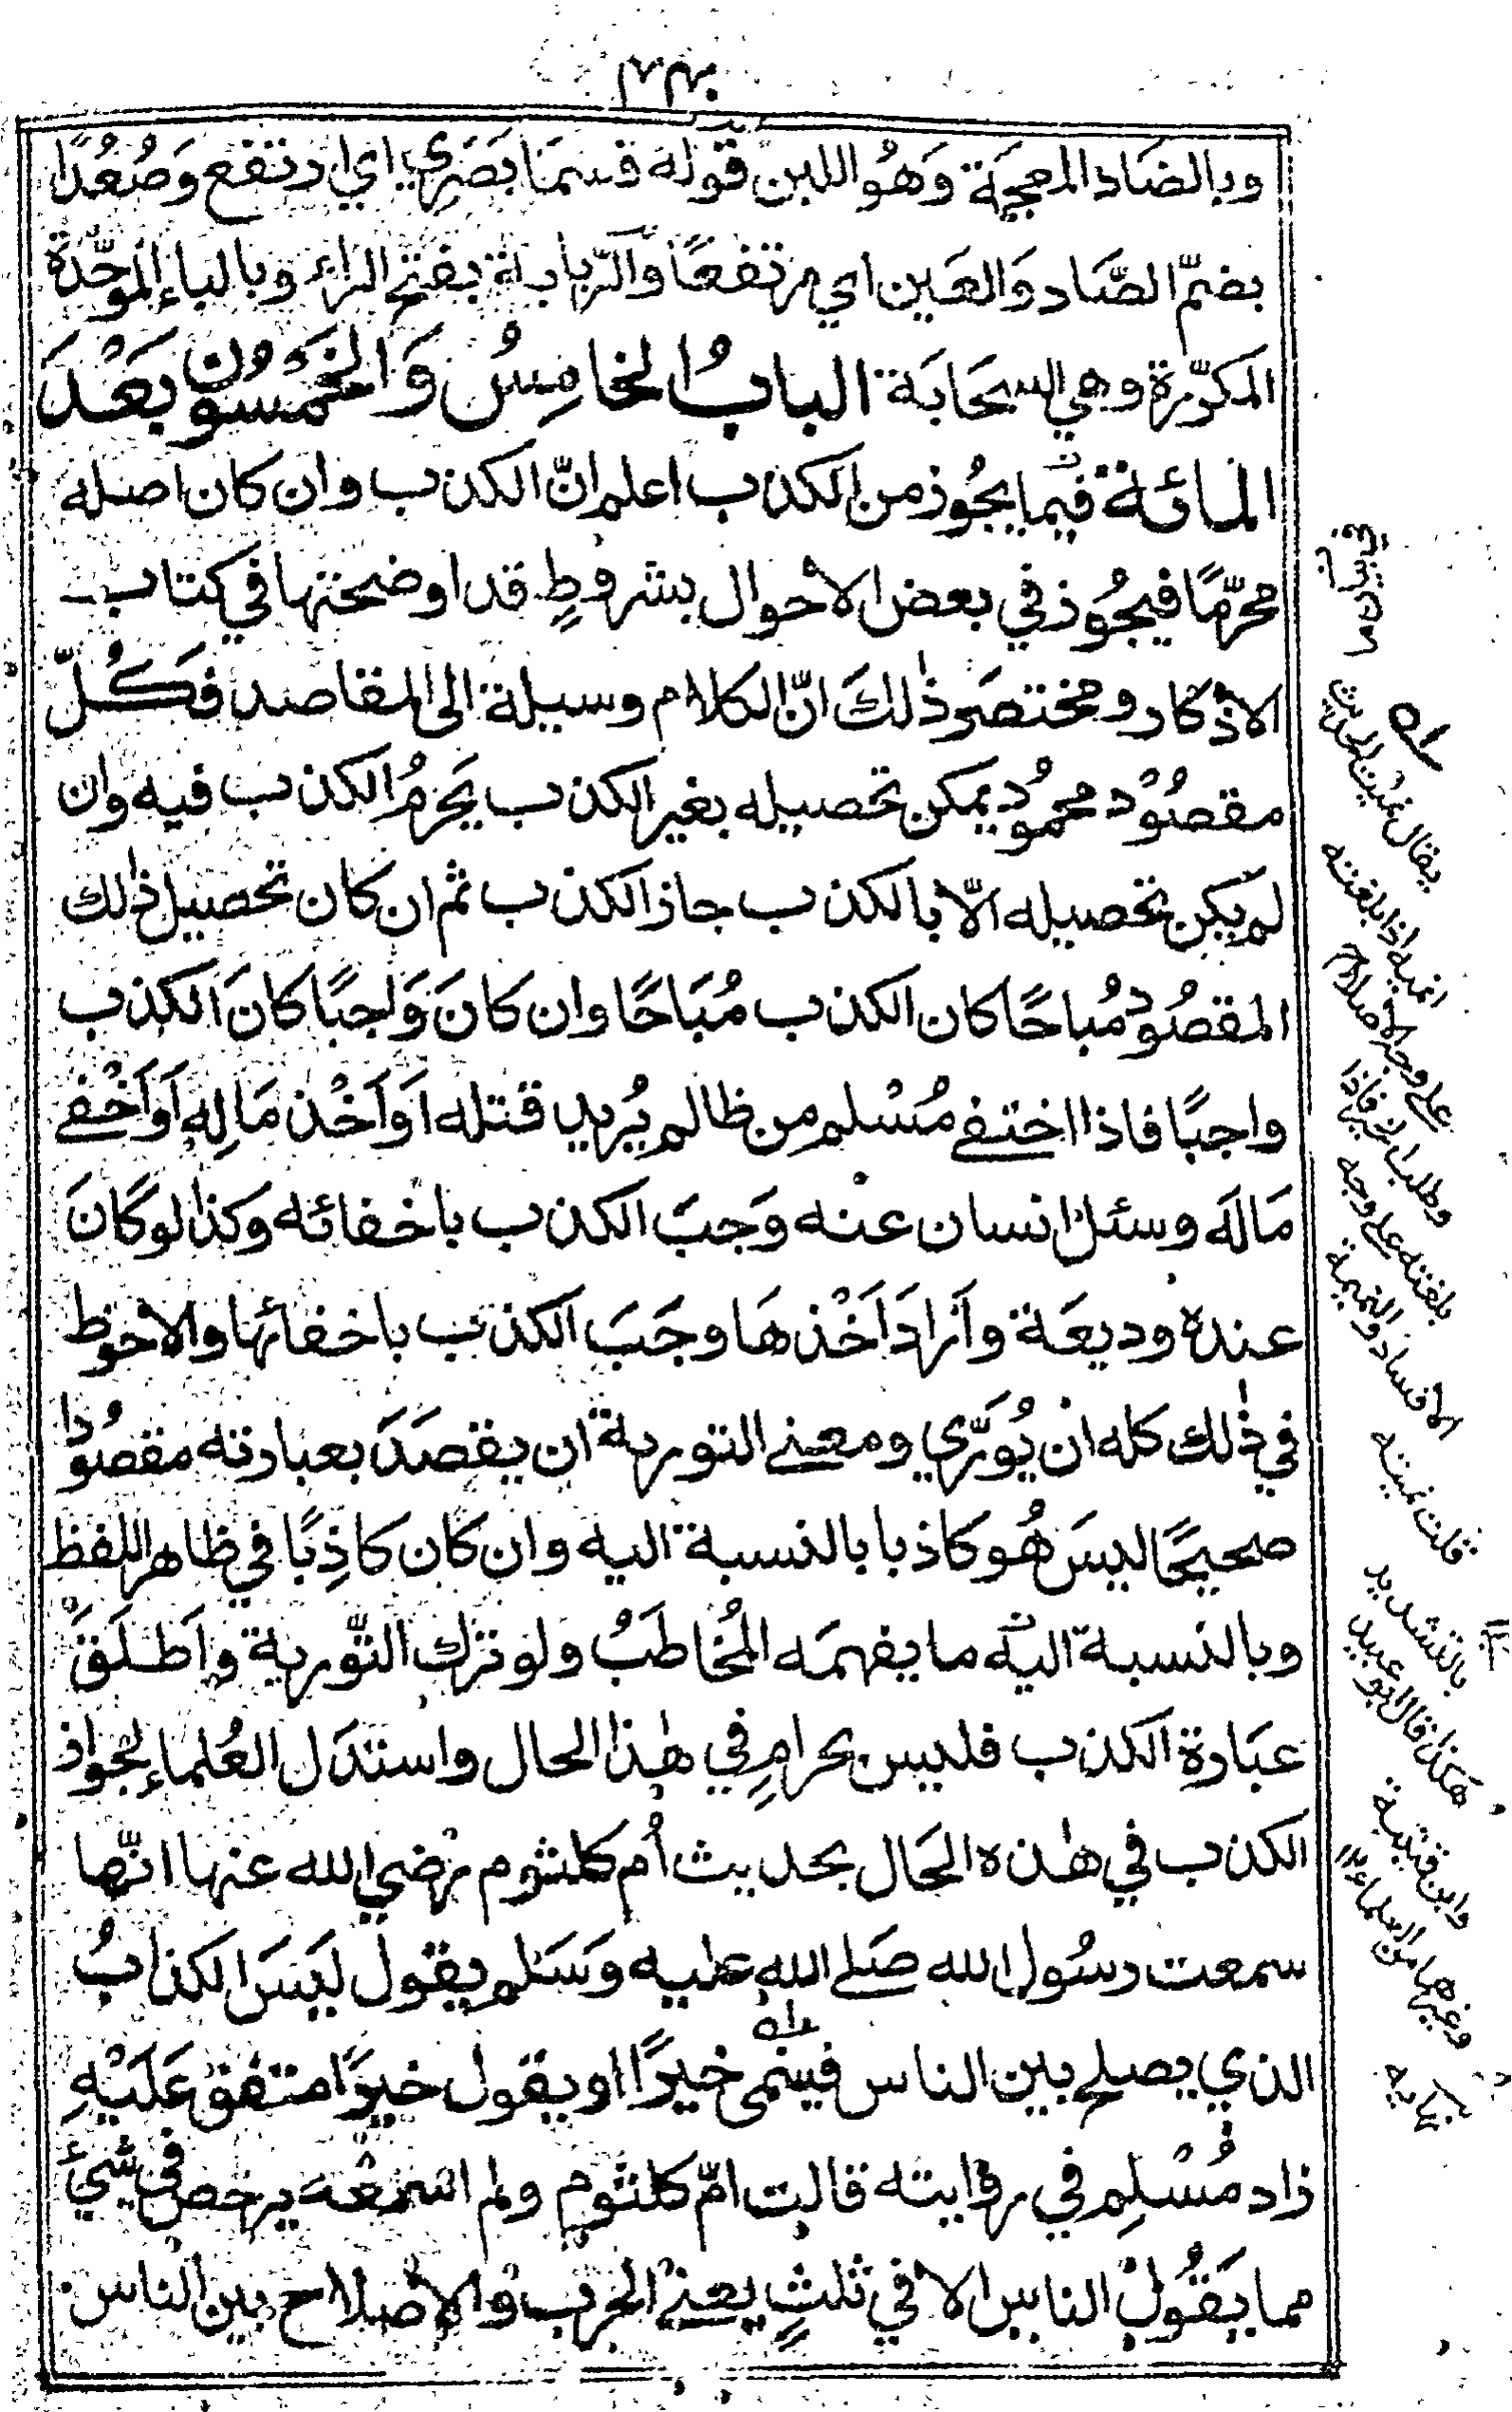 وبالضاد المعجمة وَهُو اللبن قوله فسمَا بَصَرِي اي ارتفع وَصُعُدًا
بضمّ الصَّاد وَالعَين اي مرتفعًا وَالرَّبابة بفتح الراء وبالباء المُوحَّدة
المكرّرة وهي السحَابَة البابُ الخامِسُ وَالخَمسُون بَعْدَ
المائة فيما يجُوز من الكذب اعلم انّ الكذب وان كان اصله
محرّمًا فيجُوز في بعض الاحوال بشروطٍ قد اوضحتها في كتاب
الاذكار ومختصَر ذٰلكَ انّ الكلام وسيلة الى المقاصد فَكُلّ
مقصُوْد محمُود يمكن تحصيله بغير الكذب يَحْرمُ الكذب فيه وان
لم يكن تحصيله الّا بالكذب جاز الكذب ثم ان كان تحصيل ذٰلك
المقصُود مُباحًا كان الكذب مُبَاحًا وان كانَ وَاجبًا كانَ الكذب
واجبًا فاذا اختفے مُسْلم من ظالم يُريد قتله اَوْ اَخْذ مَالِه اَو اَخْفے
مَالَه وسئل انسان عنه وَجبَ الكذب باخفائه وكذا لو كَانَ
عنده وديعَة واَرَادَ اَخْذهَا وجَبَ الكذب باخفائها والاحوط
في ذٰلك كله ان يُوَرَّي ومعنے التورية ان يقصَدَ بعبارته مقصُودًا
صحيحًا ليسَ هُو كاذبا بالنسبة اليه وان كان كاذِبًا في ظاهر اللفظ
وبالنسبة اليٰ ما يفهمَه المُخاطَبُ ولو ترك التَّورية واَطلَقَ
عبَارة الكذب فليس بحرامٍ في هٰذا الحال واستدَل العُلماء لجواز
الكذب في هٰذه الحَال بحديث اُم كلثوم رضي الله عنها انّها
سمعت رسُول الله صَلے الله عليه وَسَلم يقول لَيسَ الكذابُ
الذي يصلح بين الناس فينمى خيرًا او يقول خيرًا متفق عَلَيْهِ
زاد مُسْلِم في روايته قالت امّ كلثوم ولم اسْمَعْه يرخص في شيئ
مما يَقُولُ الناس الا في ثلثٍ يعنے الحرب والاصلاح بين الناس
يقال نميت الحديث
انميه اذا بلغته
على وجه الاصلاح
وطلب الخير فاذا
بلغته على وجه
الافساد والنميمة
قلت نميته
بالتشديد
هكذا قال ابو عبيد
وابن قتيبة
وغيرهما من العلماء
نهايه